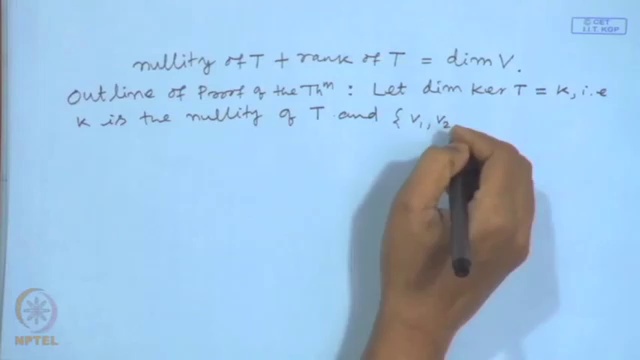 © CET
I.I.T. KGP
nullity of T + rank of T = dim V.
Outline of Proof of the Thm : Let dim ker T = k, i.e
k is the nullity of T and { v1, v2
NPTEL